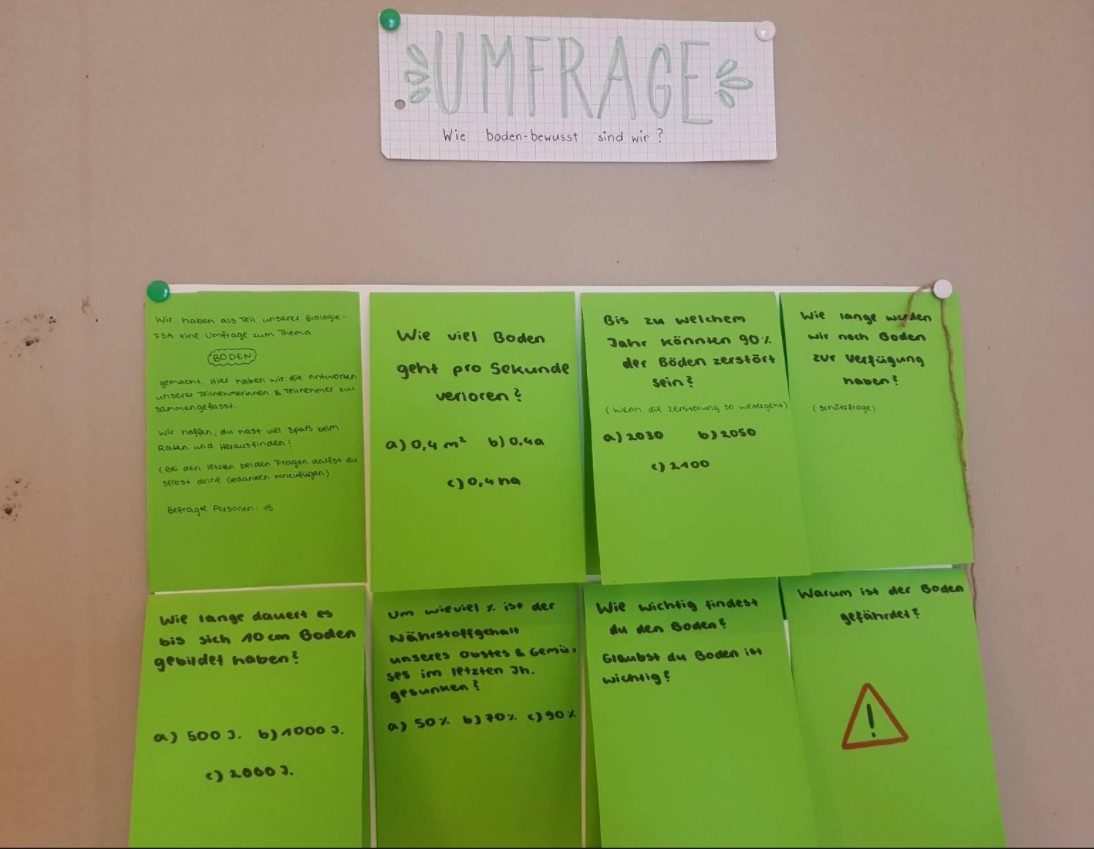 UMFRAGE
Wie boden-bewusst sind wir?
Wir haben als Teil unserer Biologie-
FSA eine Umfrage zum Thema
BODEN
gemacht. Hier haben wir die Antworten
unserer Teilnehmerinnen & Teilnehmer zu-
sammengefasst.
Wir hoffen, du hast viel Spaß beim
Raten und Herausfinden!
(Bei den letzten beiden Fragen darfst du
selbst deine Gedanken hinzufügen)
Befragte Personen: 15
Wie viel Boden
geht pro Sekunde
verloren?
a) 0,4 m² b) 0,4a
c) 0,4 ha
Bis zu welchem
Jahr könnten 90%
der Böden zerstört
sein?
(wenn die Zerstörung so weitergeht)
a) 2030 b) 2050
c) 2100
Wie lange werden
wir noch Boden
zur Verfügung
haben?
(Schätzfrage)
Wie lange dauert es
bis sich 10 cm Boden
gebildet haben?
a) 500 J. b) 1000 J.
c) 2000 J.
Um wieviel % ist der
Nährstoffgehalt
unseres Obstes & Gemü-
ses im letzten Jh.
gesunken?
a) 50% b) 70% c) 90%
Wie wichtig findest
du den Boden?
Glaubst du Boden ist
wichtig?
Warum ist der Boden
gefährdet?
!